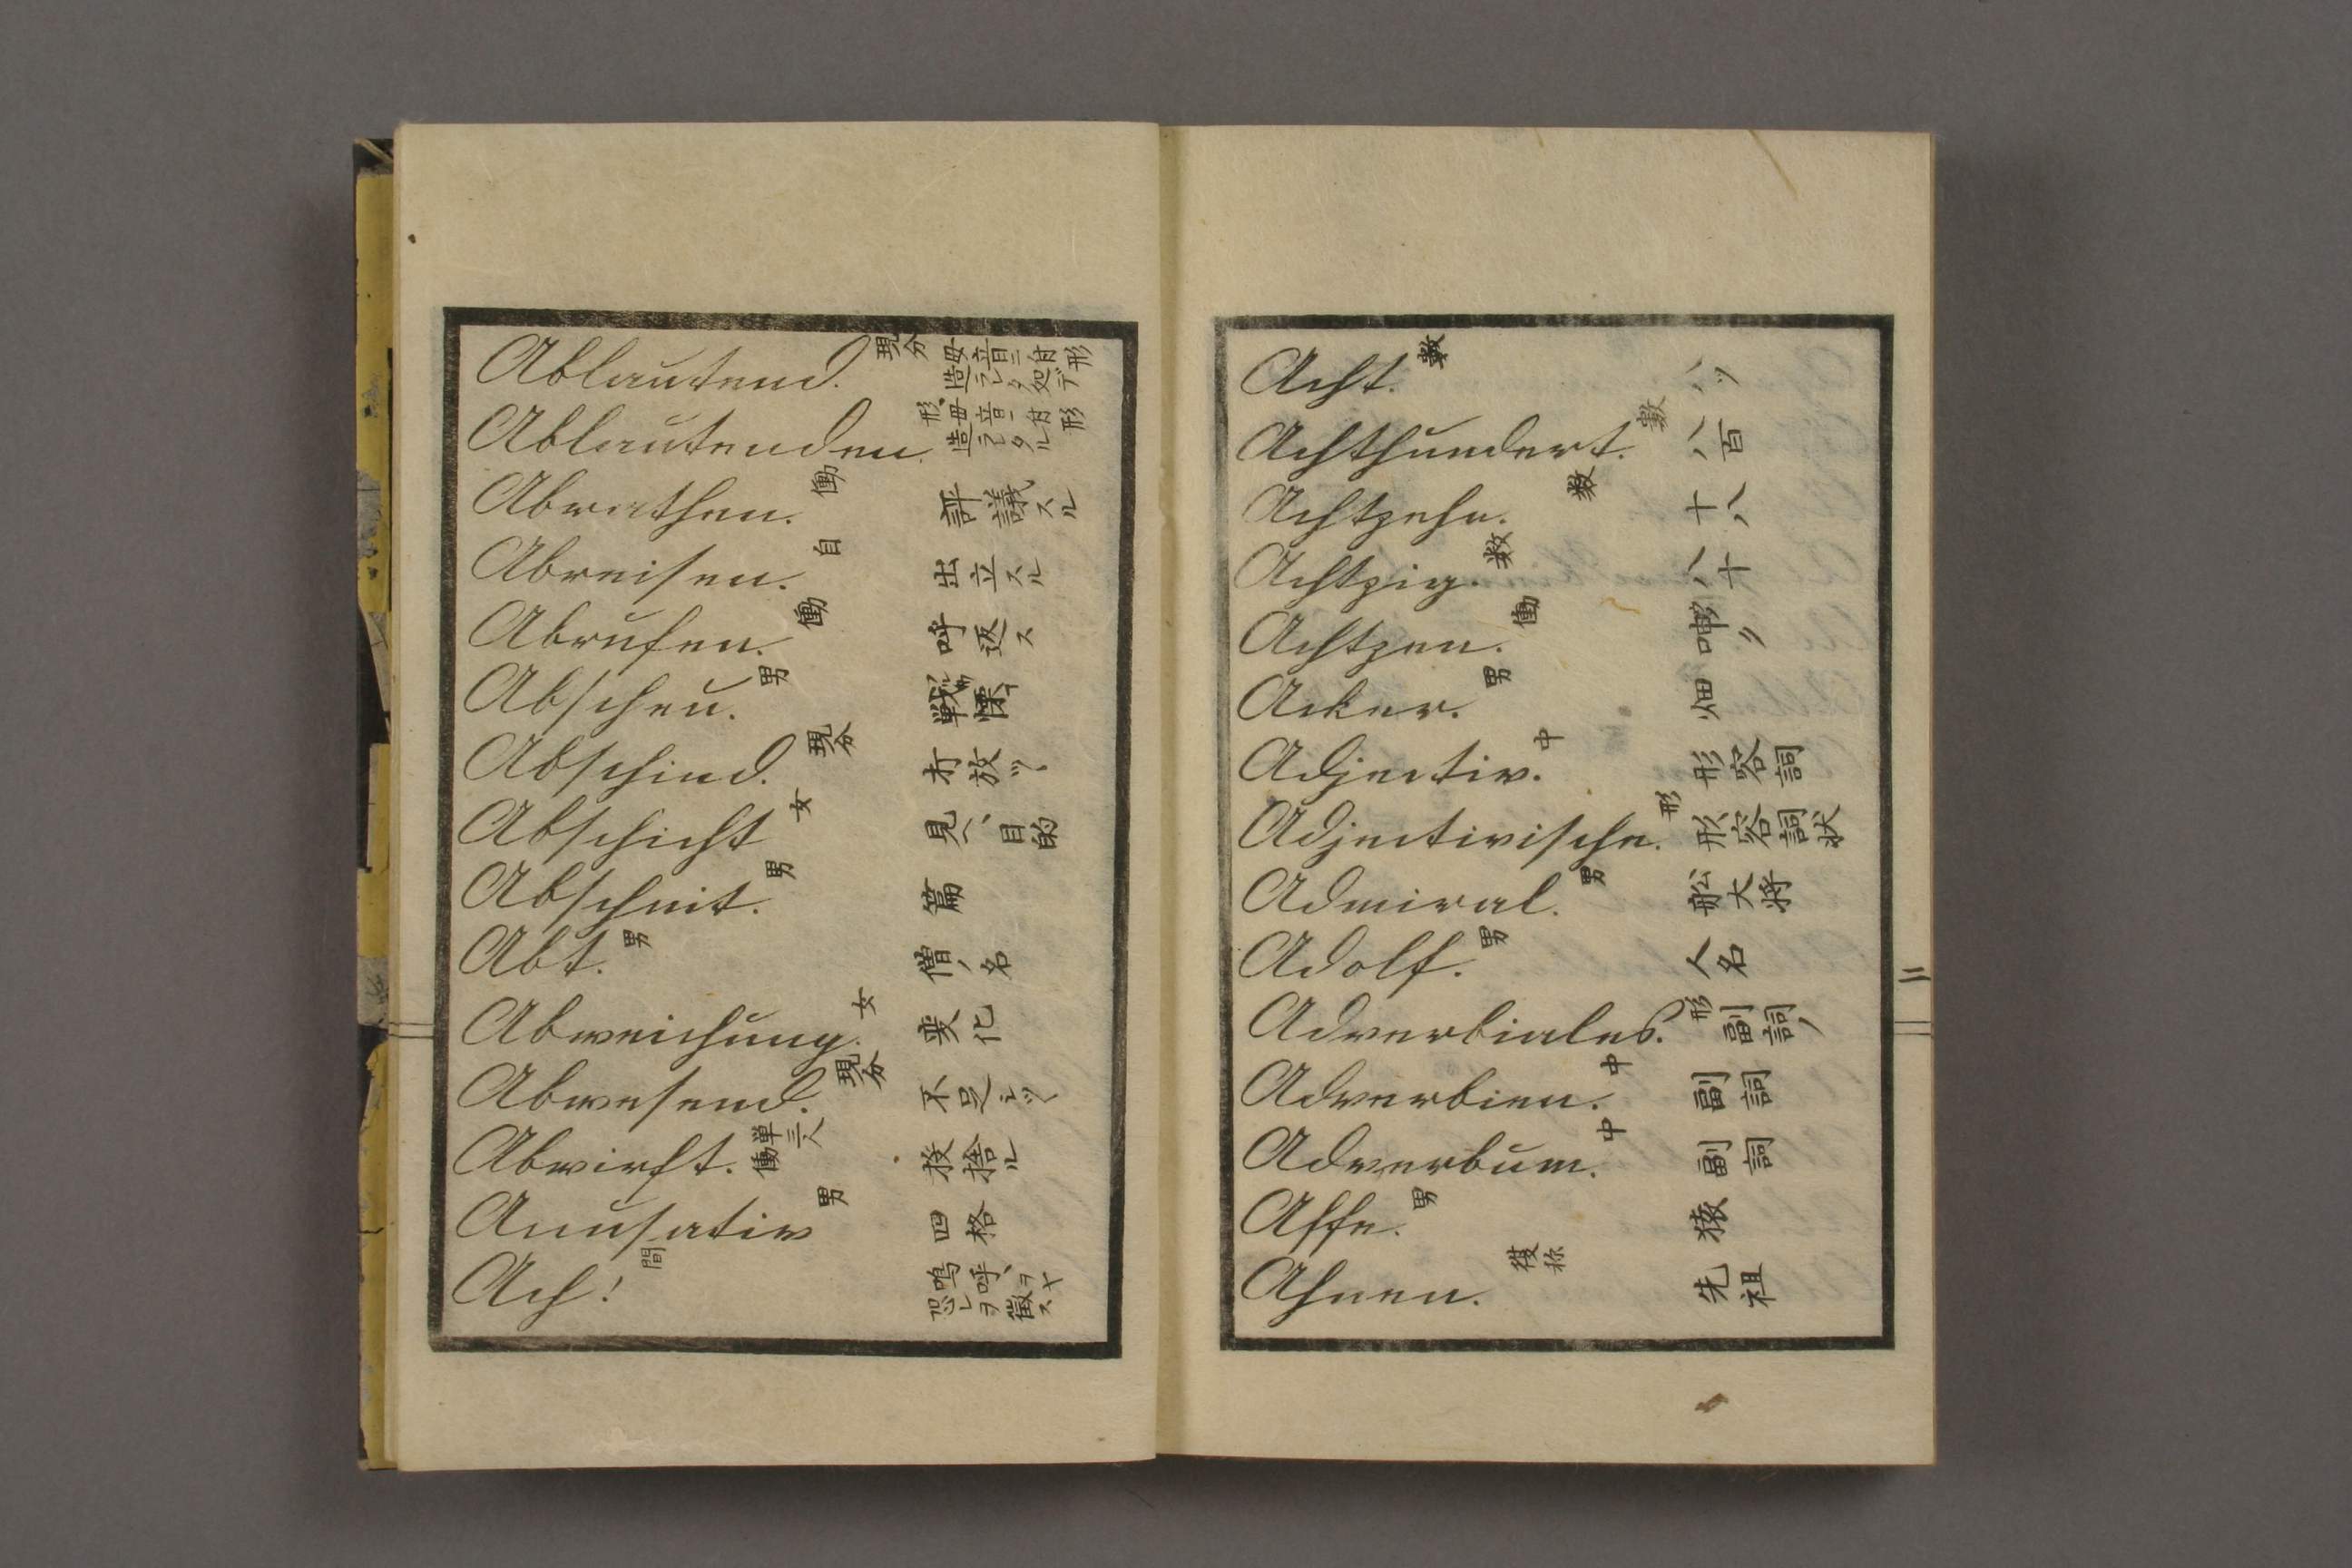 Ablautend. 現分
Ablautenden. 形
Abrathen. 働 評議スル
Abreisen. 自 出立スル
Abrufen. 働 呼返ス
Abscheu. 男 戦慄
Abschied. 現分 放ツ
Abschicht 女 見ヘ、目的
Abschnit. 男 篇
Abt. 男 僧ノ名
Abweichung. 女 変化
Abwesend. 現分 不足シツヽ
Abwirft. 働単三人 投捨ル
Accusativ 男 四格
Ach! 間 嗚呼、
Acht. 數 八ツ
Achthundert. 數 八百
Achtzehn. 数 十八
Achtzig. 数 八十
Achtzen. 働
Acker. 男 畑
Adjectiv. 中 形容詞
Adjectivische. 形 形容詞状
Admiral. 男 船大将
Adolf. 男 人名
Adverbiales. 形 副詞ノ
Adverbien. 中 副詞
Adverbum. 中 副詞
Affe. 男 猿
Ahnen. 複称 先祖
二